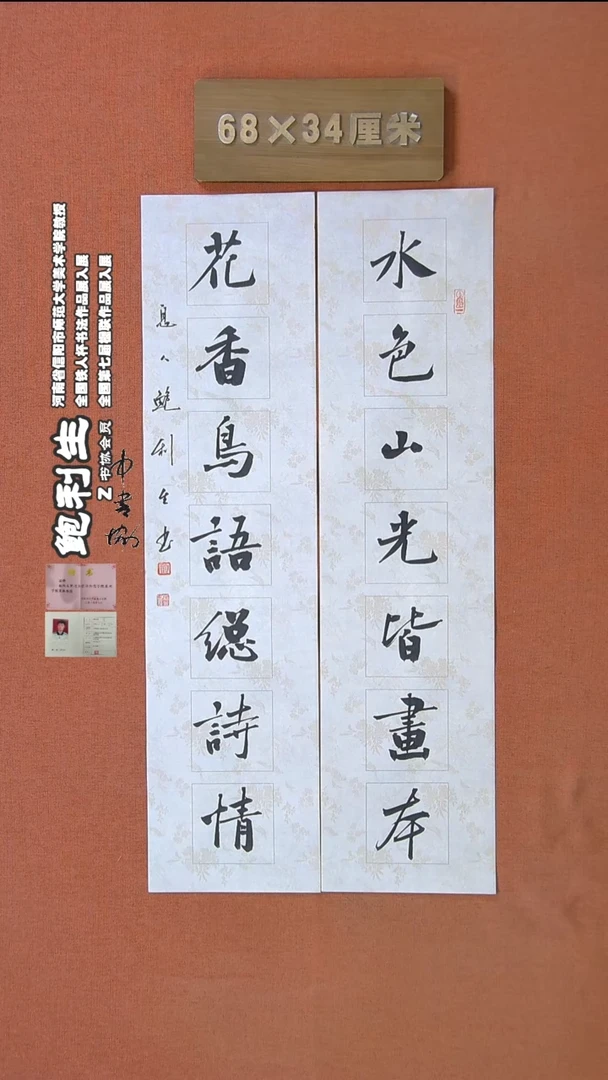 68×34厘米
水色山光皆畫本
花香鳥語總詩情
息人鲍利生书
河南省信阳市师范大学美术学院教授
全国铁人杯书法作品展入展
全国第七届楹联作品展入展
鲍利生
书协会员
中书协